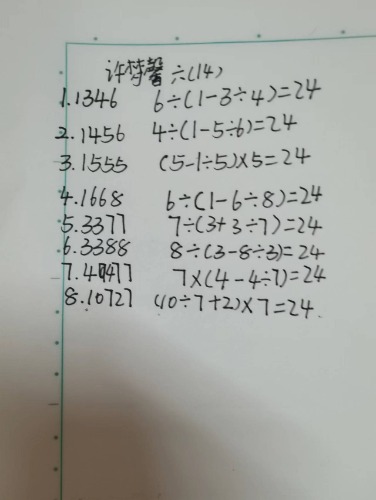 许梦馨 六(14)
1.1346 6÷(1-3÷4)=24
2.1456 4÷(1-5÷6)=24
3.1555 (5-1÷5)×5=24
4.1668 6÷(1-6÷8)=24
5.3377 7÷(3+3÷7)=24
6.3388 8÷(3-8÷3)=24
7.4477 7×(4-4÷7)=24
8.10727 (10÷7+2)×7=24